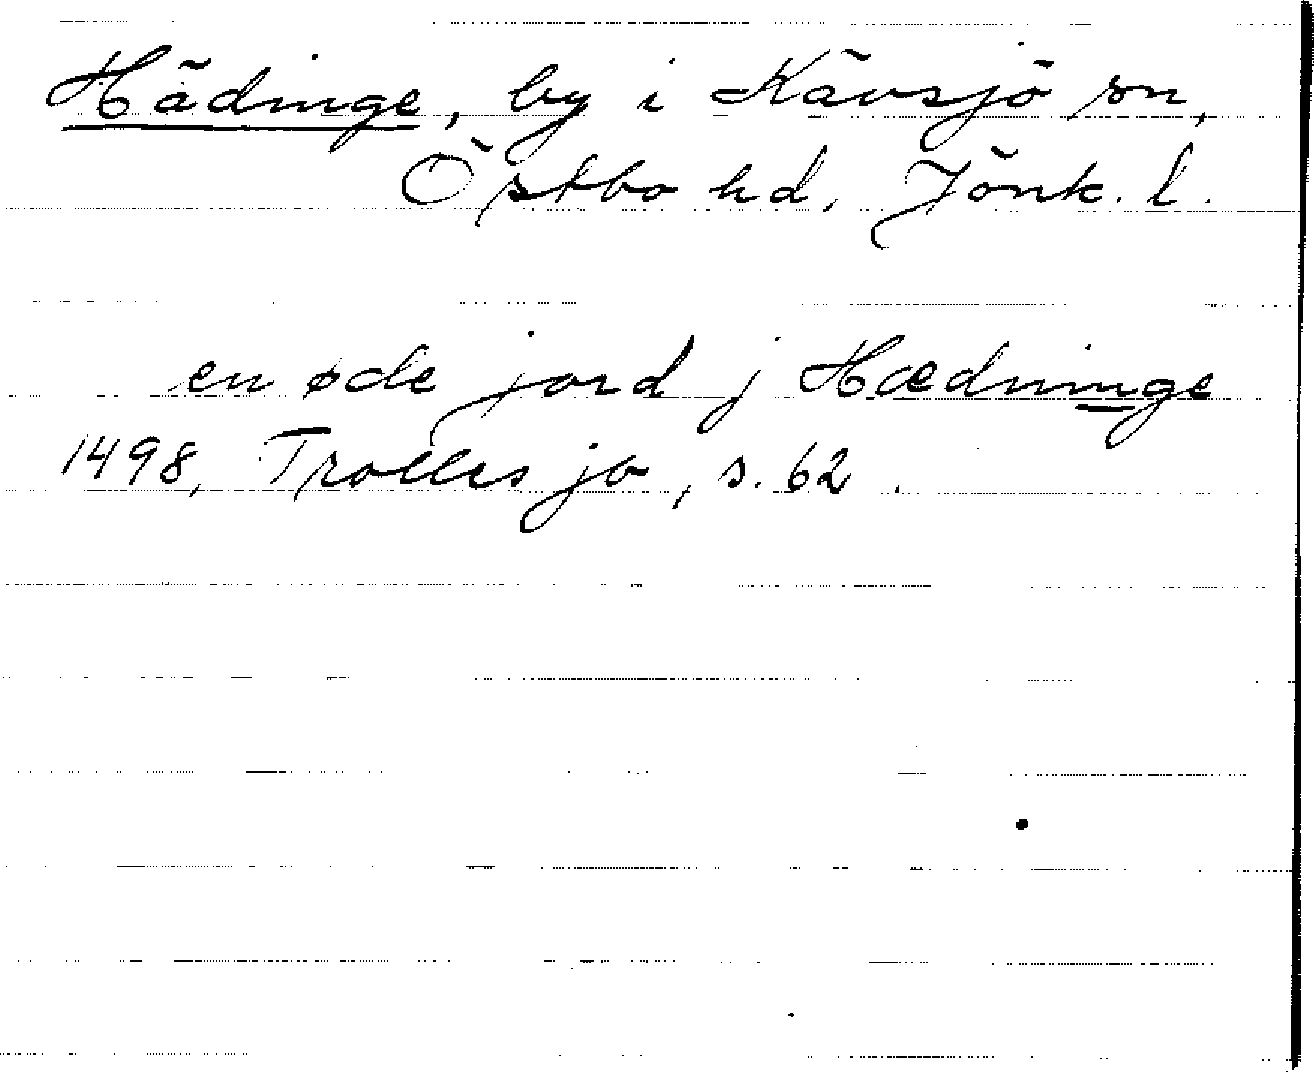 Hädinge, by i Kävsjö sn,
Östbo hd, Jönk. l.
en øde jord j Hædninge
1498, Trolles jb, s. 62.